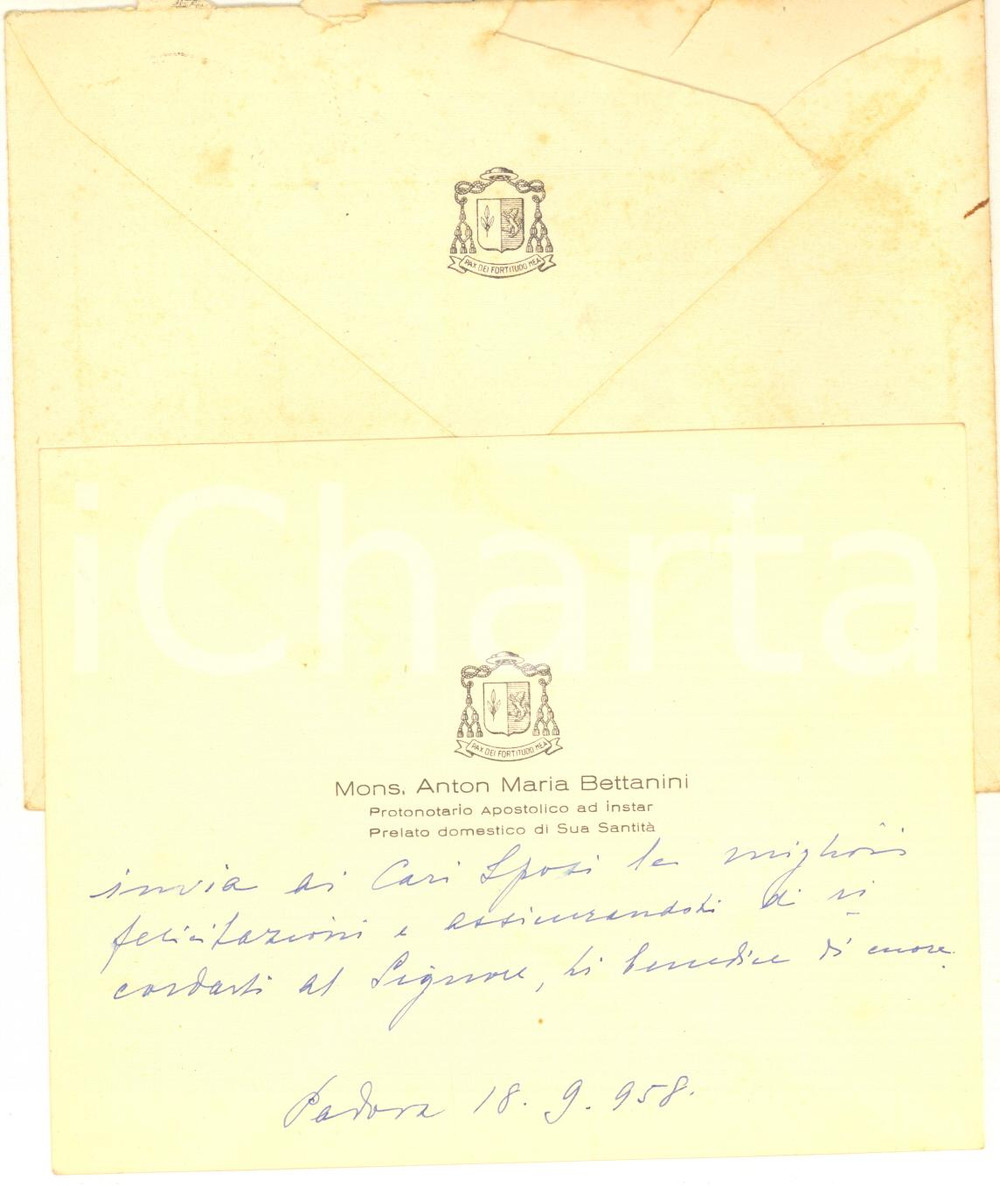 PAX DEI FORTITUDO MEA
iCharta
PAX DEI FORTITUDO MEA
Mons. Anton Maria Bettanini
Protonotario Apostolico ad instar
Prelato domestico di Sua Santità
invia ai Cari Sposi le migliori
felicitazioni e assicurandoti di ri
cordarti al Signore, ti benedice di cuore.
Padova 18. 9. 958.